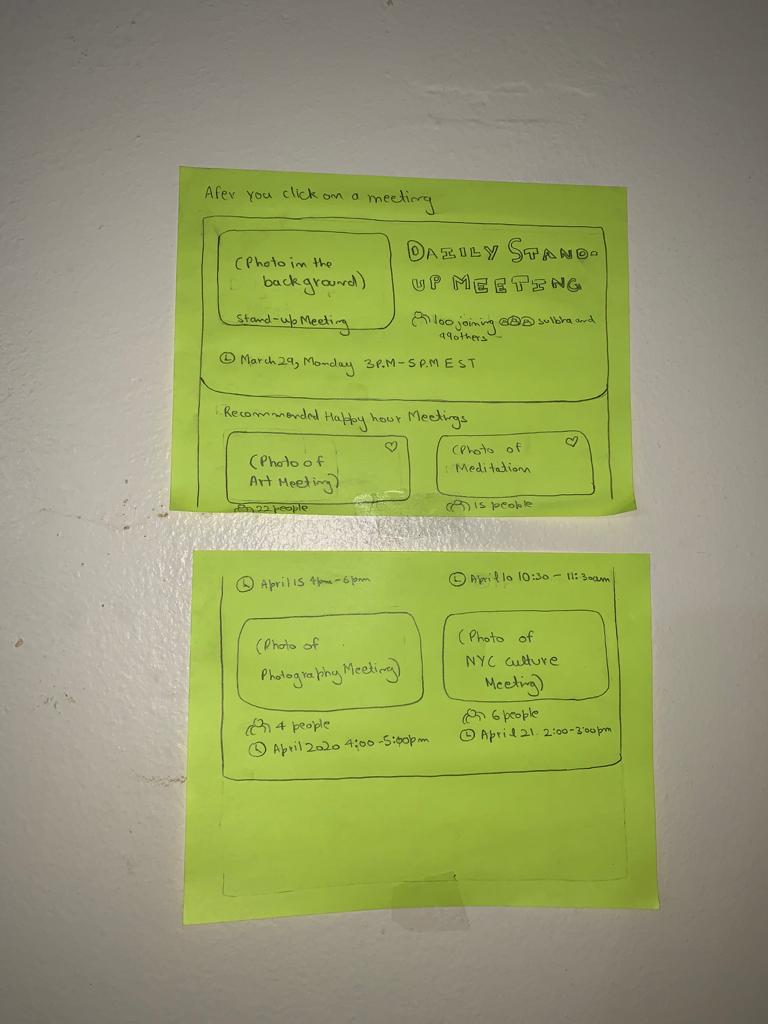 Afer you click on a meeting
(Photo in the
background)
Stand-up Meeting
DAIILY STAND-
UP MEETING
100 joining sulbha and
99others
March 29, Monday 3P.M-5P.M EST
Recommended Happy hour Meetings
(Photo of
Art Meeting)
(Photo of
Meditation
22 people
15 people
April 15 4pm-6pm
April 10 10:30 - 11:30am
(Photo of
Photography Meeting)
(Photo of
NYC culture
Meeting)
4 people
6 people
April 2020 4:00-5:00pm
April 21. 2:00-3:00pm